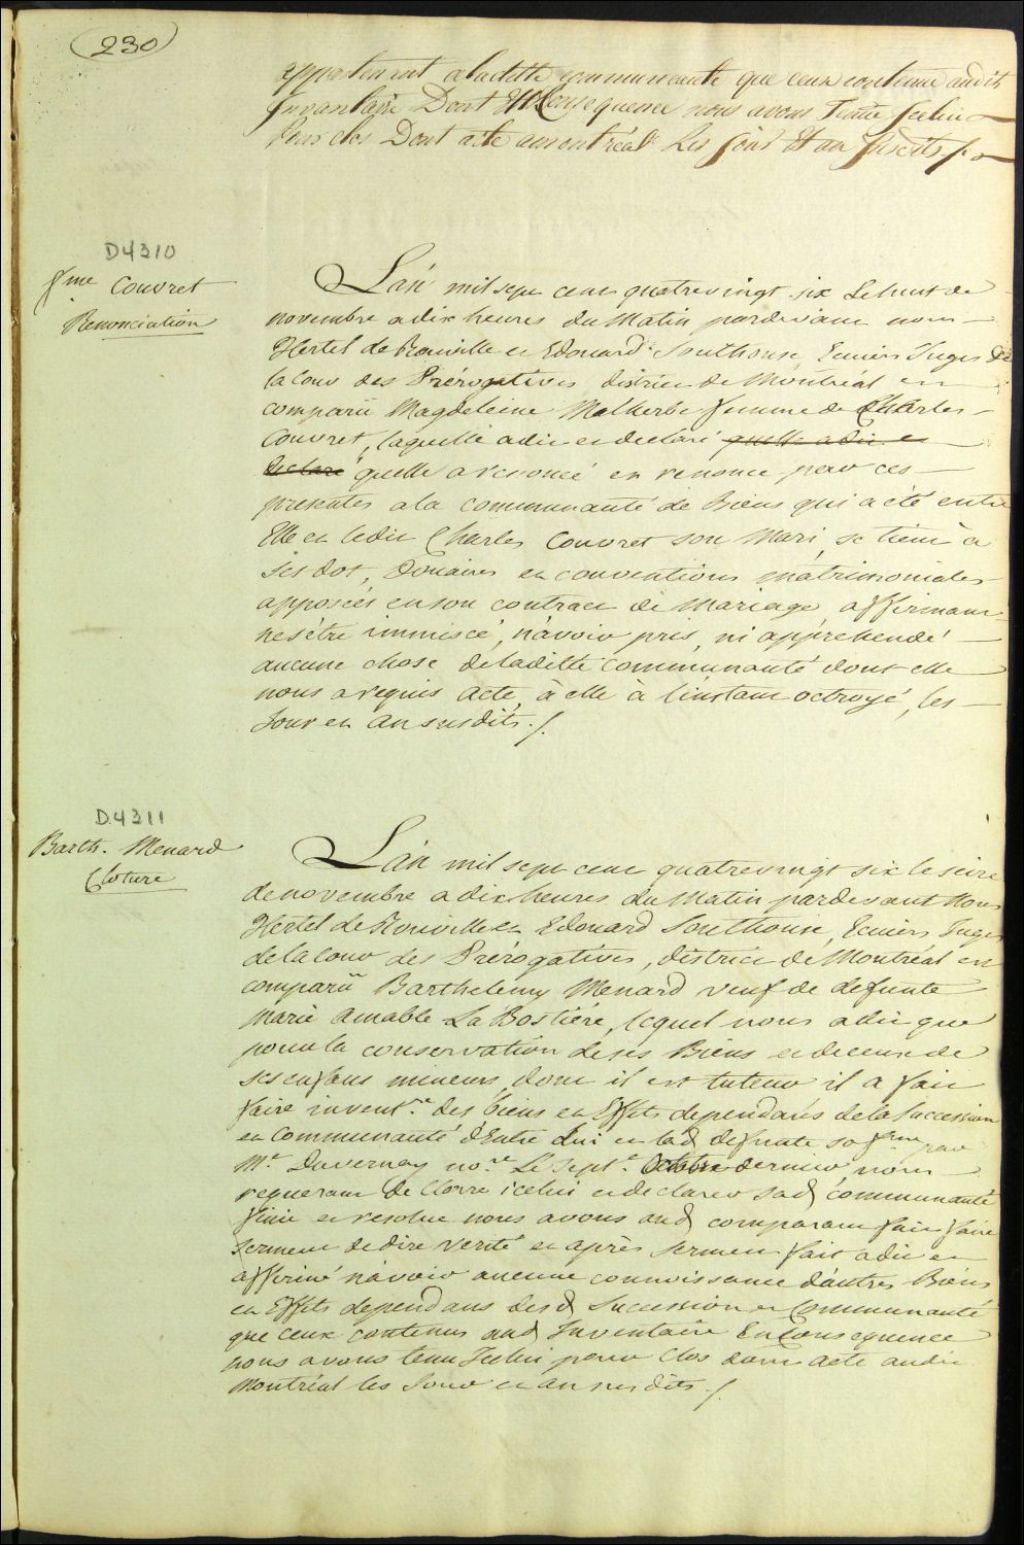 (230)
appartenant a ladette communeauté que ceux contenue audit
Invantaire Dont En Consequence nous avons Tenue Icelui
Pour clos Dont acte amontréal Les Jour Et an susdits
D4310
fme Couvret
Renonciation
L'an mil sept cent quatrevingt six Le huit de
novembre a dix heures du Matin pardevant nous
Hertel de Rouville et Edouard Southouse Ecuiers Juges de
la Cour des Prérogatives district de Montréal est
comparüe Magdeleine Malherbe femme de Charles
Couvret, laquelle a dit et declaré quelle a dit et
declaré quelle a renoncé et renonce par ces
presentes a la communauté de Biens qui a été entre
Elle et ledit Charles Couvret son Mari, se tient à
ses dot, Douaires et conventions matrimoniales
apposées en son contract de Mariage, affirmant
ne s'être immiscé, n'avoir pris, ni appréhendé
aucune chose de ladite communauté dont elle
nous a requis acte, à elle à l'instant octroyé, les
Jour et an susdits./.
D.4311
Barth. Menard
Cloture
L'an mil sept cent quatrevingt six le seize
de novembre a dix heures du Matin pardevant Nous
Hertel de Rouville et Edouard Southouse, Ecuiers Juges
de la Cour des Prérogatives, district de Montréal est
comparü Barthelemy Menard veuf de defunte
Marie Amable La Bostiére, lequel nous a dit que
pour la conservation de ses Biens et de ceux de
ses enfans mineurs, dont il est tuteur il a fait
faire invent.re des biens et Effets dependans de la Succession
et Communauté d'Entre Lui et lad. defunte sa fme par
Mr. Duvernay no.re Le Sept.e Octobre dernier, nous
requerant de Clorre icelui et declarer sad. communauté
finie et resolue nous avons aud. comparant fait faire
serment de dire verité et après serment fait a dit et
affirmé n'avoir aucune connoissance d'autres Biens
et Effets dependans desd. Succession et Communauté
que ceux contenus aud. Inventaire En Consequence
nous avons tenu Icelui pour Clos dont acte audit
Montréal les Jour et an susdits./.